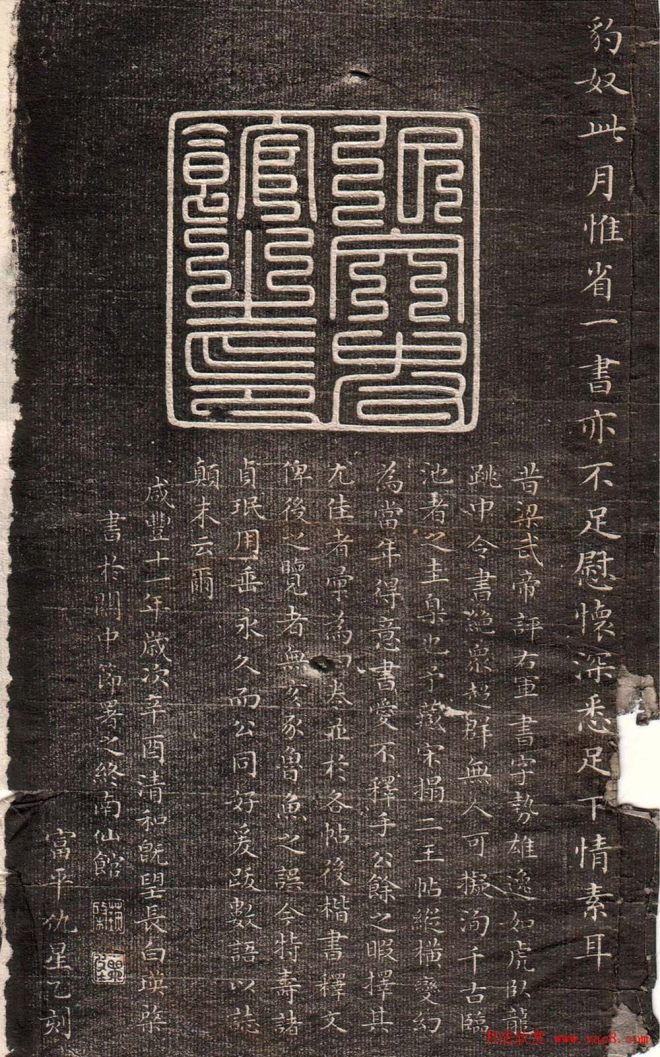 豹奴此月惟省一書亦不足慰懷深悉足下情素耳
昔梁武帝評右軍書字勢雄逸如虎臥龍
跳中令書絕眾超群無人可擬洵千古臨
池者之圭臬也予藏宋搨二王帖縱橫變幻
為當年得意書愛不釋手公餘之暇擇其
尤佳者彙為卷並於各帖後楷書釋文
俾後之覽者無亥豕魯魚之誤今特壽諸
貞珉用垂永久而公同好爰跋數語以誌
顛末云爾
咸豐十一年歲次辛酉清和既望長白瑛棨
書於關中節署之終南仙館
富平仇星乙刻
www.yac8.com